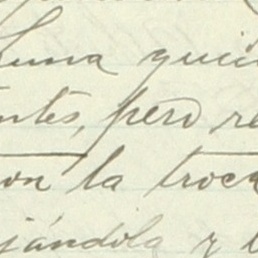 Luna quie
ntes, pero re
on la troca
jándola y l